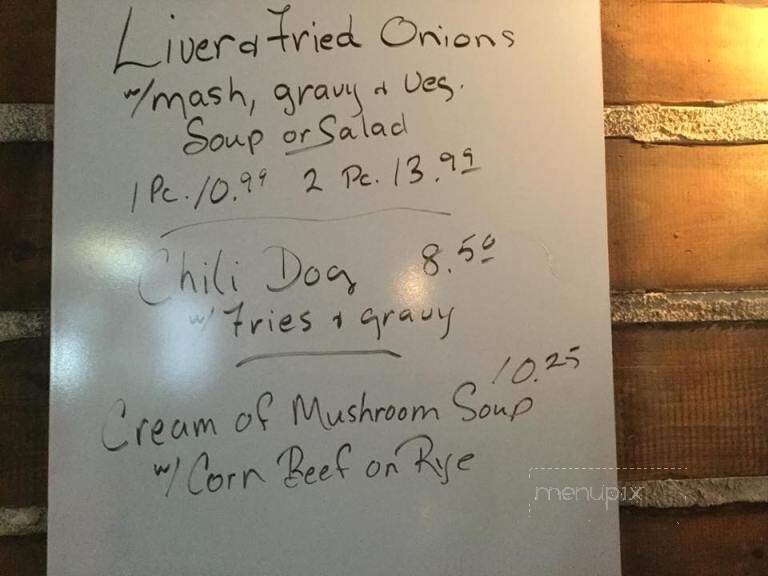 Liver & Fried Onions
w/mash, gravy & Veg.
Soup or Salad
1 Pc. 10.99 2 Pc. 13.99
Chili Dog 8.50
w/ Fries & gravy
10.25
Cream of Mushroom Soup
w/ Corn Beef on Rye
menupix